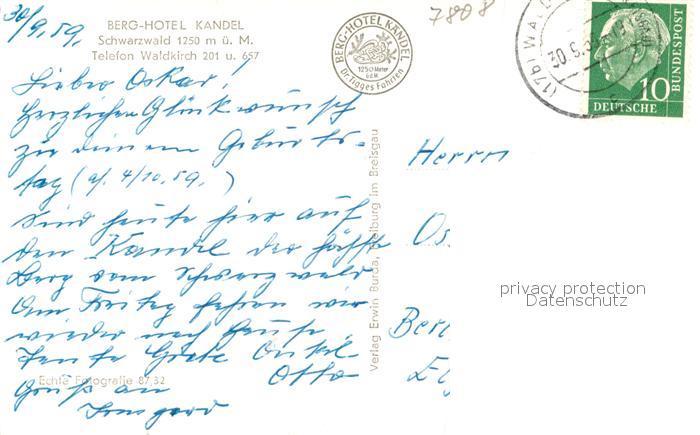 30/9.59.
BERG-HOTEL KANDEL
Schwarzwald 1250 m ü. M.
Telefon Waldkirch 201 u. 657
BERG-HOTEL KANDEL
1250 Meter
ü.d.M.
Dr. Trages Fahren
7808
(17b) WALD
30.9.59
10
DEUTSCHE
BUNDESPOST
Lieber Oskar!
Herzlichen Glückwunsch
zu deinem Geburts-
tag (4/10.59.)
Sind heute hier auf
den Kandel der höchste
Berg vom Schwarzwald
Am Freitag fahren wir
wieder nach Hause.
Tante Grete Onkel
Otto
Echte Fotografie 87,32
Gruß an
Irmgard
Verlag Erwin Burda, Freiburg im Breisgau
Herrn
Os
Berl
privacy protection
Datenschutz